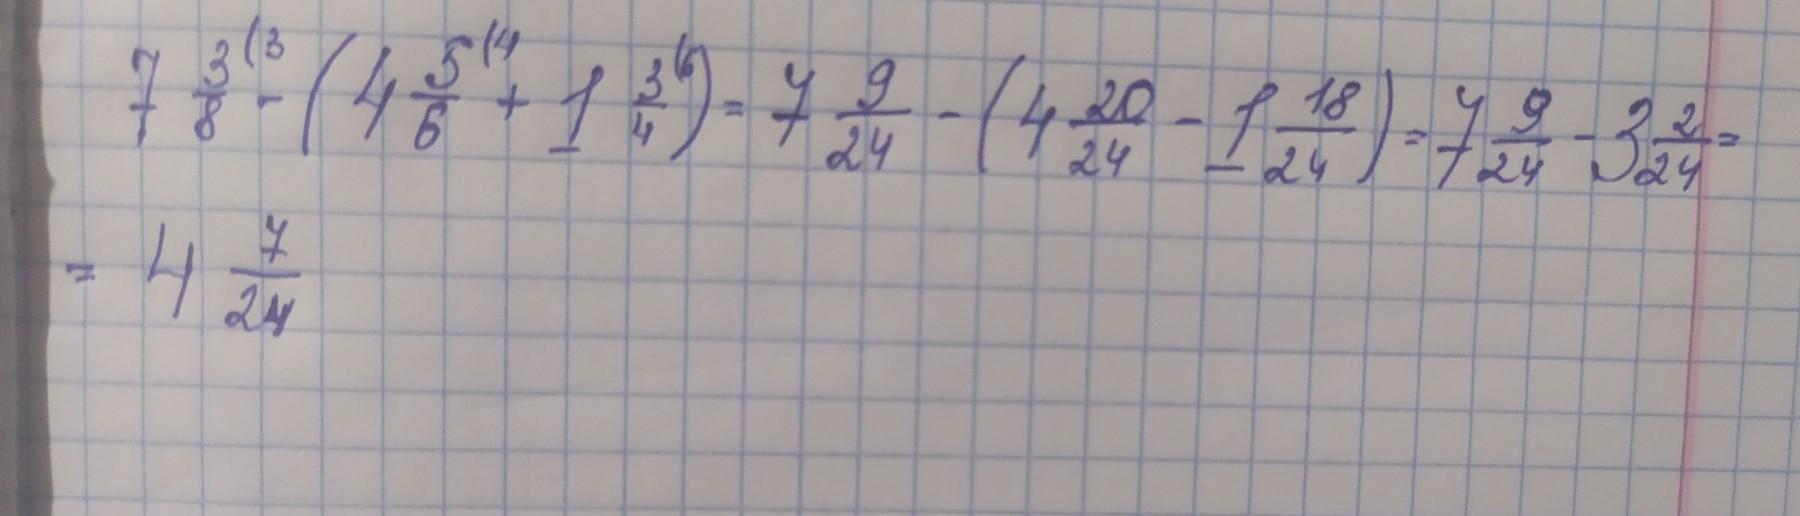 7 3/8 (3 - (4 5/6 (4 + 1 3/4 (6) = 7 9/24 - (4 20/24 - 1 18/24) = 7 9/24 - 3 2/24 =
= 4 7/24